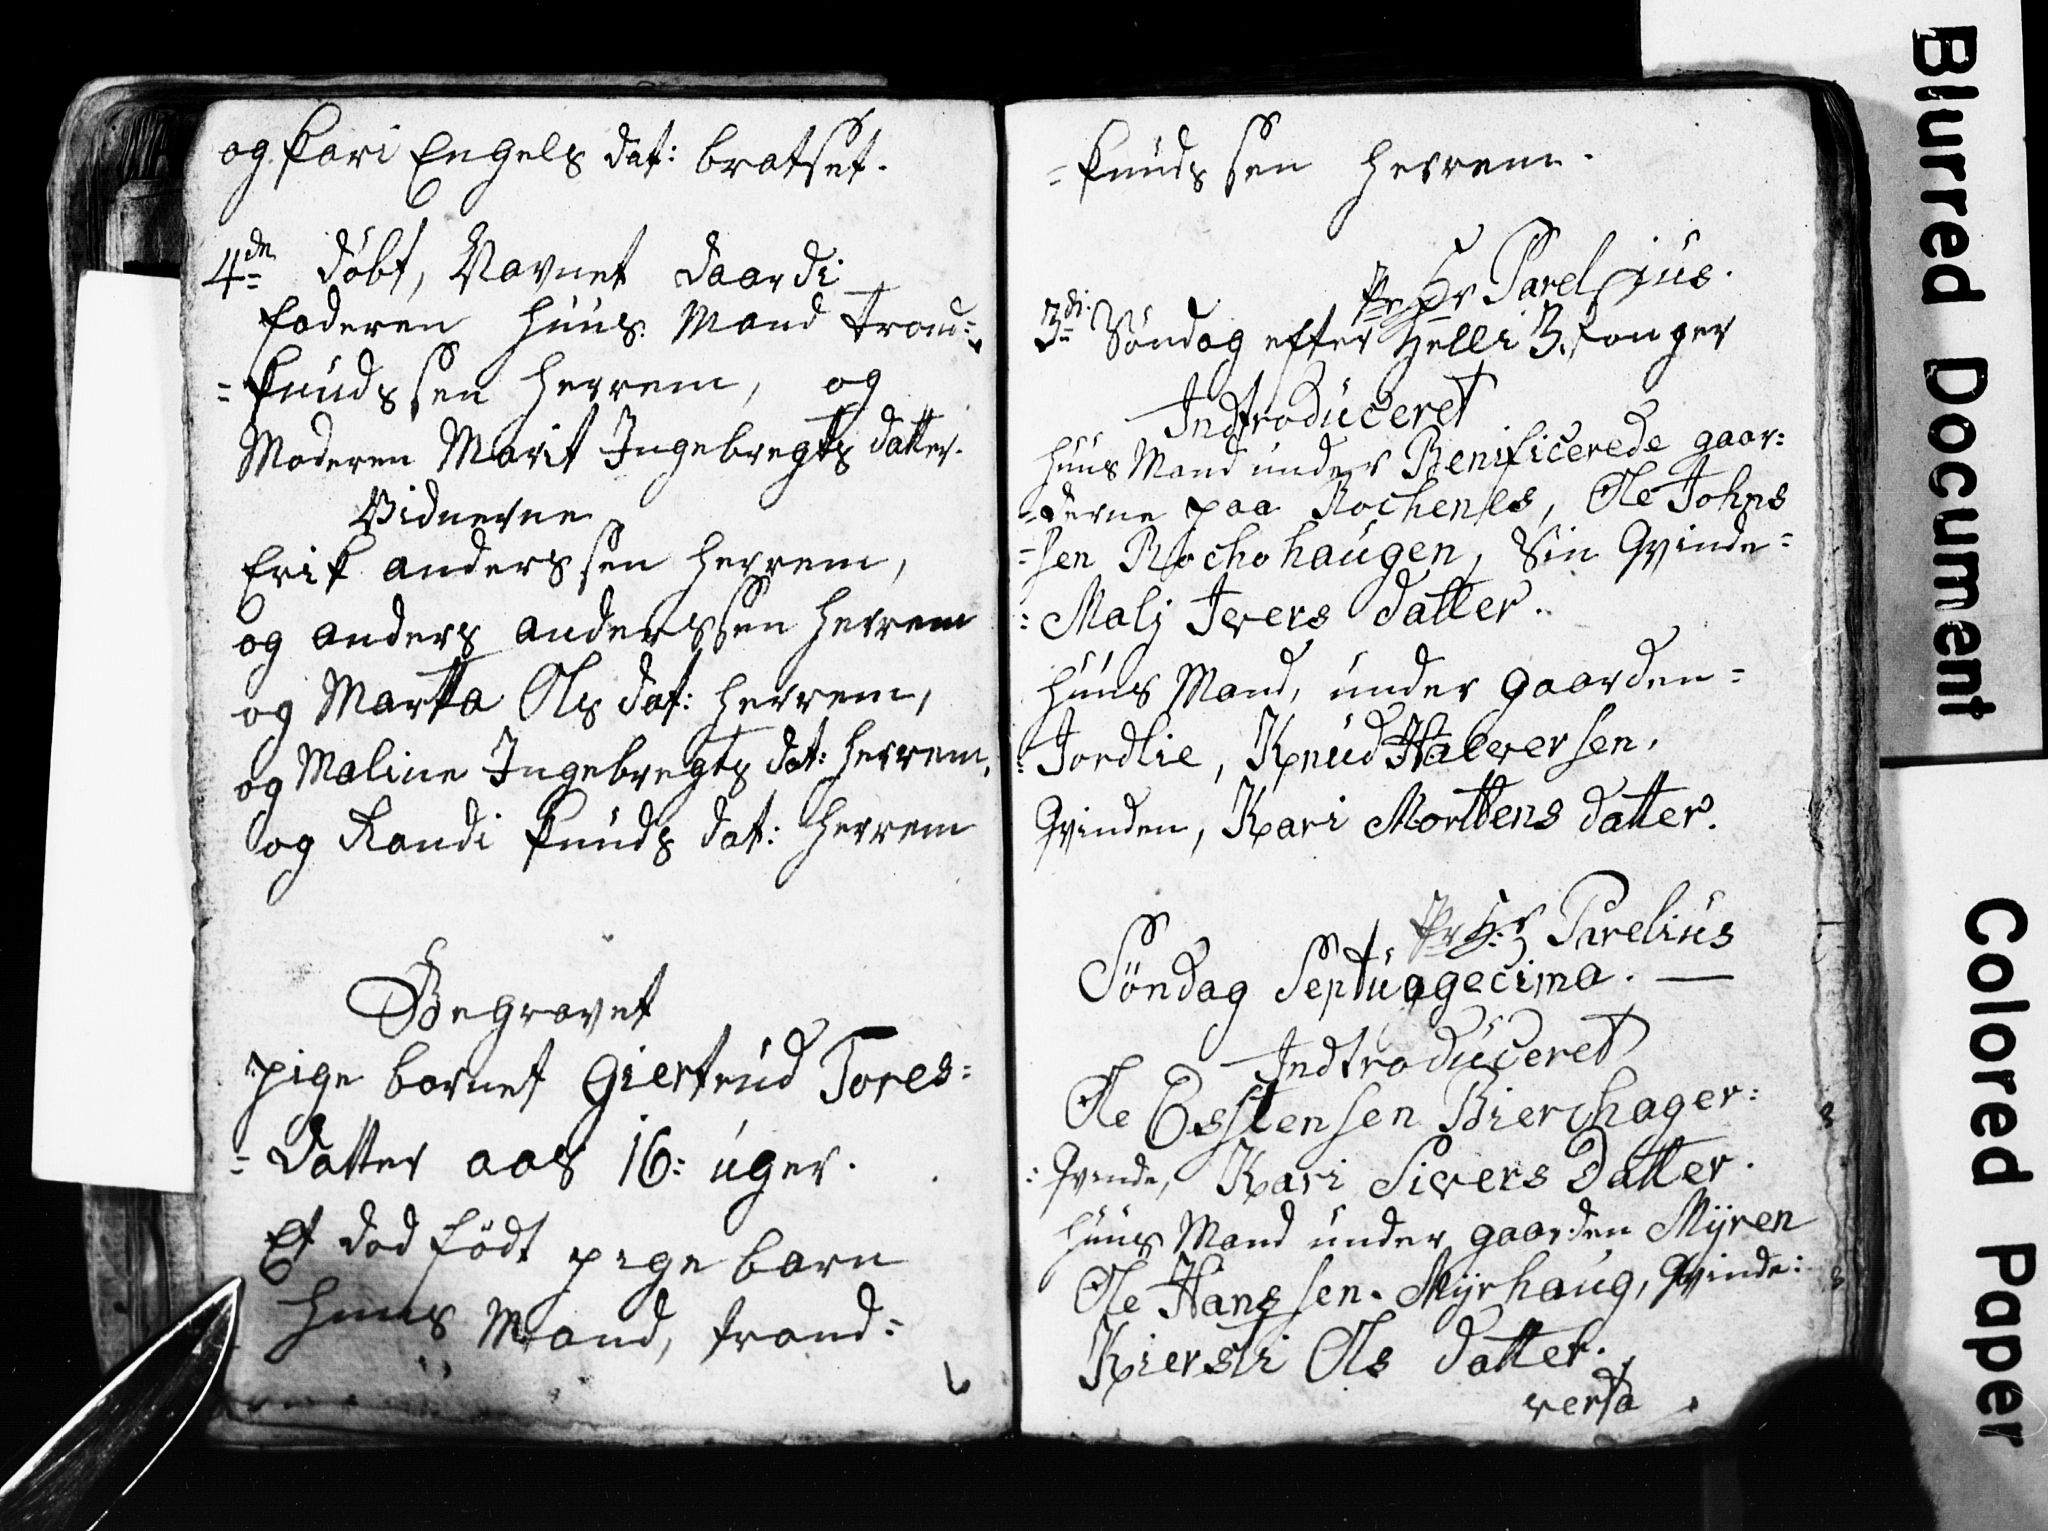 og kari Engels dat: bratset.
4de døbt, Navnet Daardi
faderen huus Mand trond=
=knudssen herrem, og
Moderen Marit Ingebregts datter.
Vidnerne
Erik anderssen herrem,
og anders anderssen herrem
og Martta Ols dat: herrem,
og Maline Ingebregts dat: herrem,
og Randi knuds dat: herrem
Begravet
pige barnet Giertrud Tores=
=datter aas 16: uger.
Et död födt pige barn
huus Mand, trond=
=knudssen herrem.
Pr Hr Parelius.
3di Søndag efter Helli 3. konger
Indtroduceret
huus Mand under Benificerede gaar=
=derne paa Rochenes, Ole Johns
=sen Rochohaugen, Sin Qvinde=
=Malj Ivers datter.
huus Mand, under gaarden=
=Jordlie, Knud Halversen,
Qvinden, Kari Morttens datter.
Pr Hr Parelius
Söndag Septuagecima. —
Indtroduceret
Ole Estensen Bierchager=
=Qvinde, Kari Sivers Datter.
huus Mand under gaarden Mÿren
Ole Hanssen. Mÿrhaug, Qvinde=
Kiersti Ols datter.
verta
Blurred Document
Colored Paper